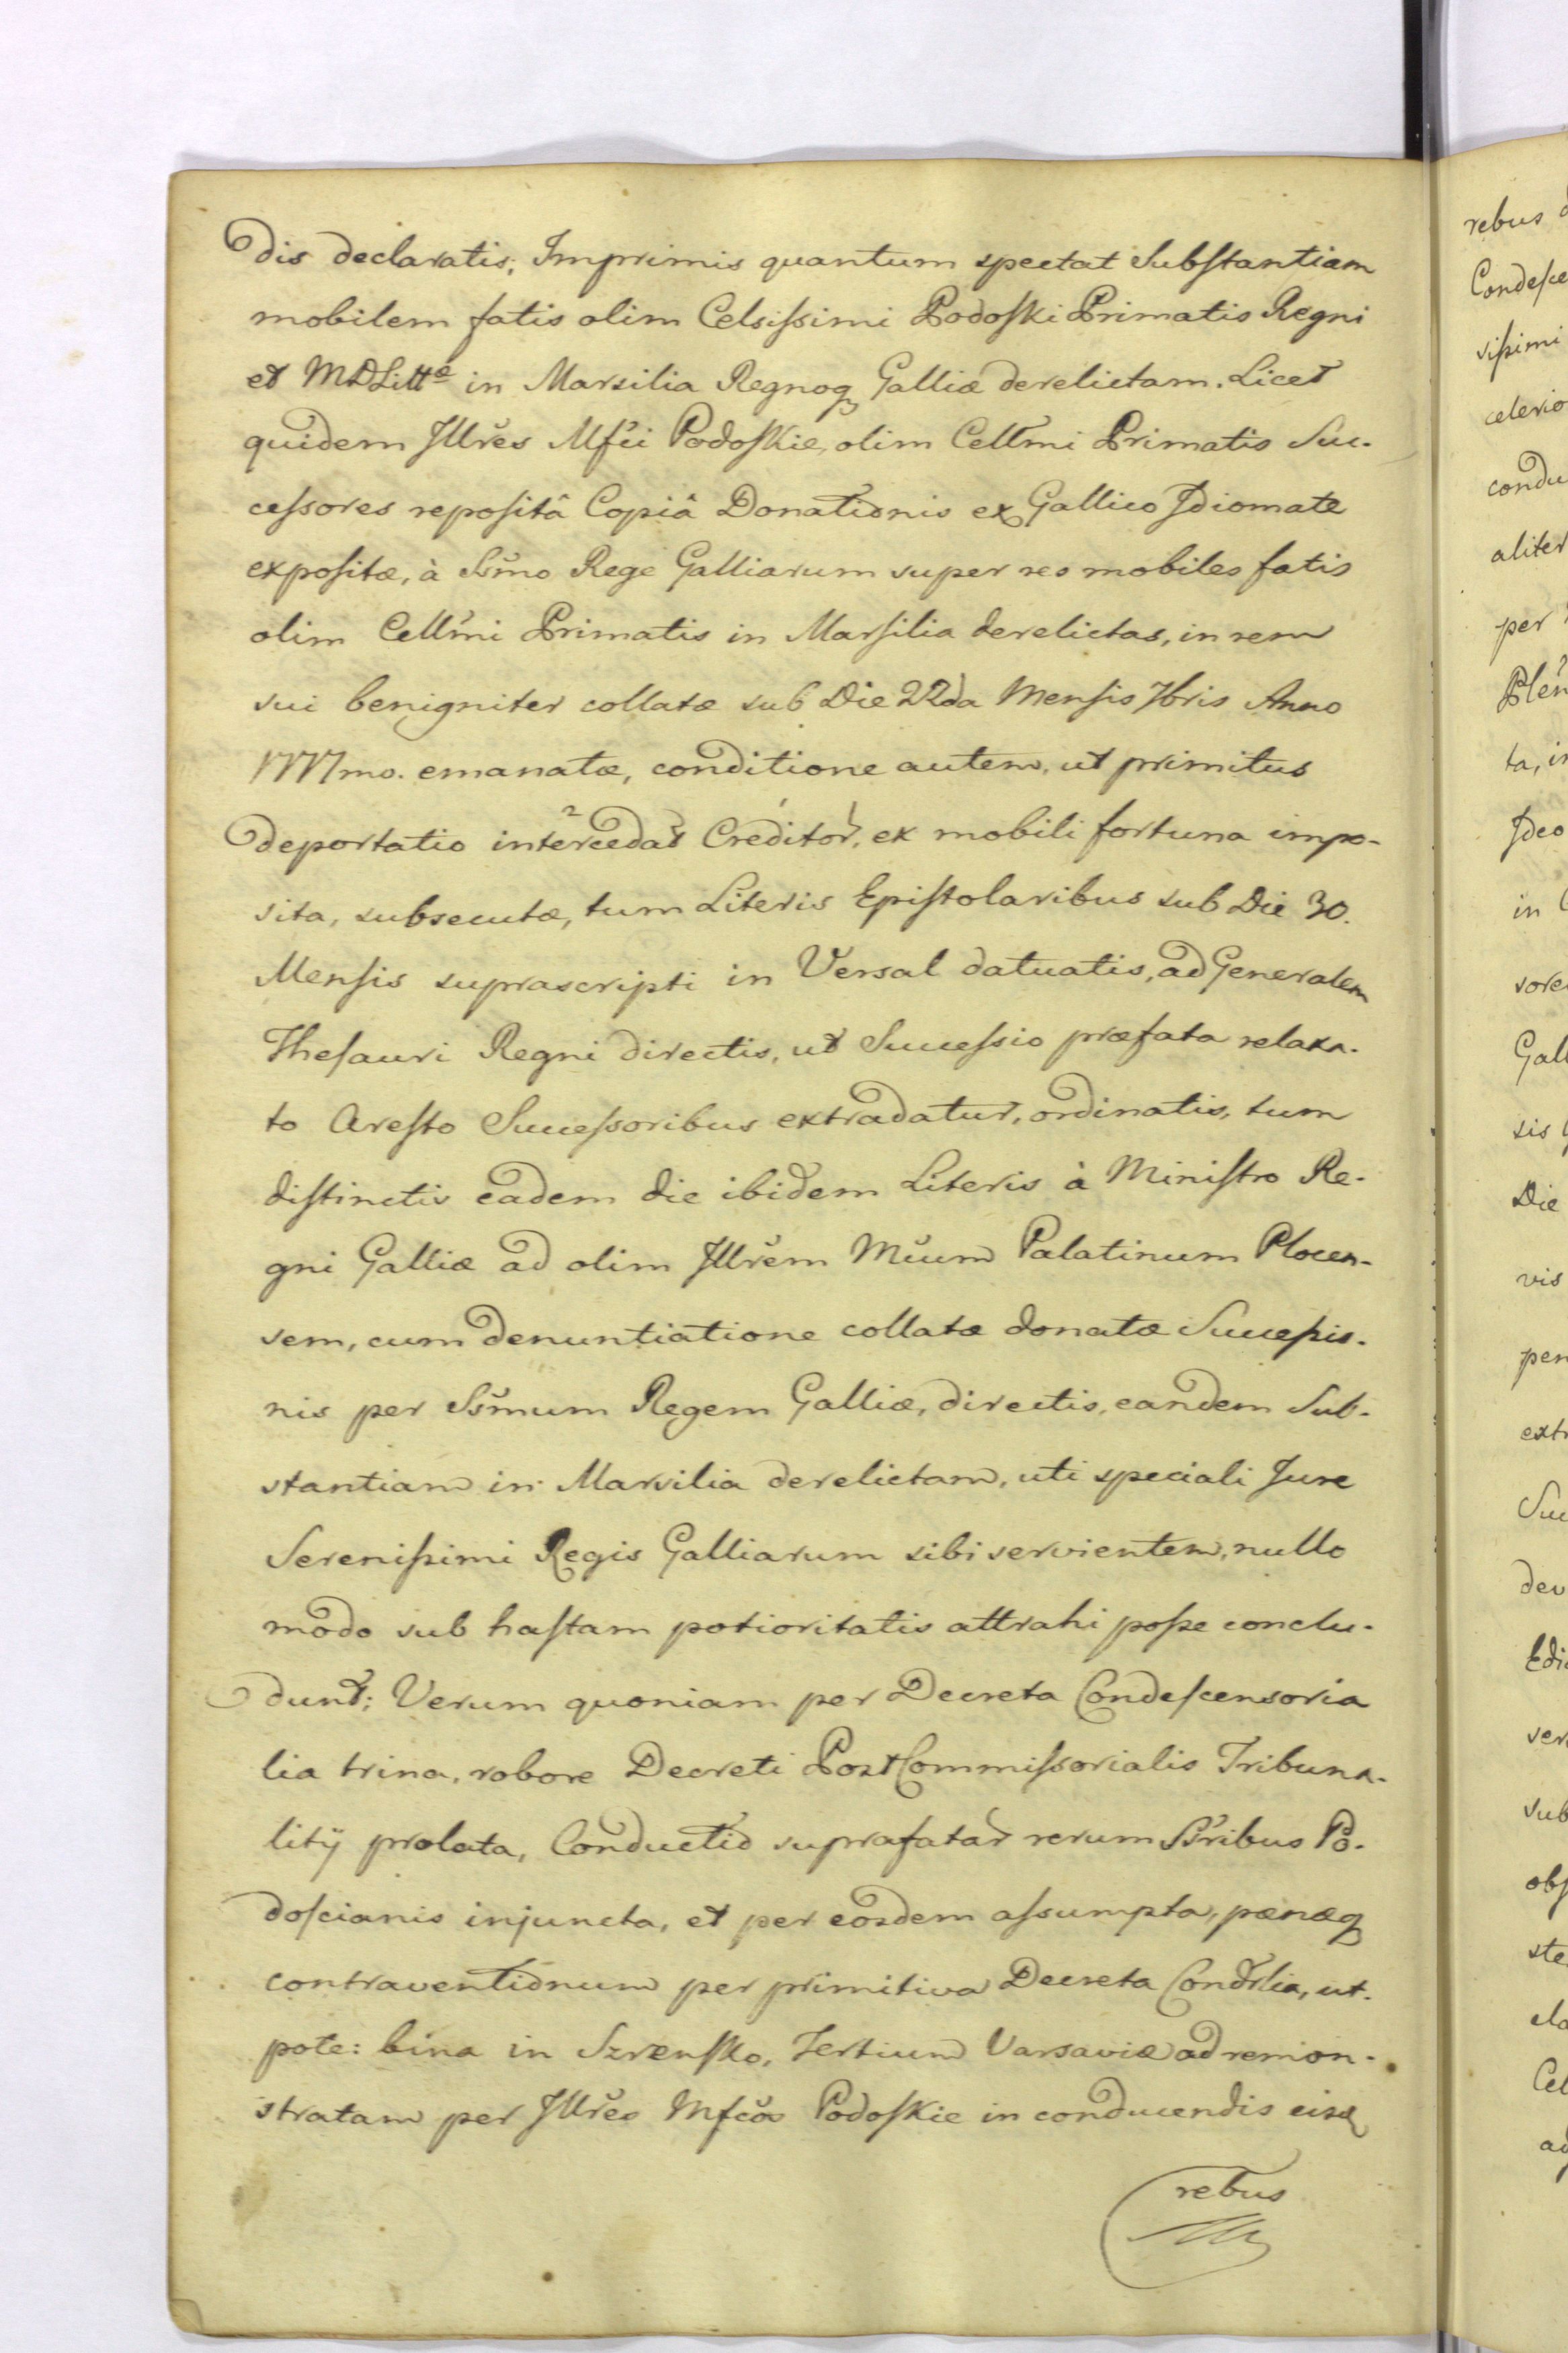 dis declaratis, Imprimis quantum spectat Substantiam
mobilem fatis olim Celsissimi Podoski Primatis Regni
et MDLittæ in Marsilia Regnoq Galliæ derelictam. Licet
quidem Jllrĕs Mfĕi Podoskie, olim Cellm̃i Primatis Suc-
cessores repositâ Copiâ Donationis ex Gallico Jdiomate
expositæ, à Ssm̃o Rege Galliarum super res mobiles fatis
olim Cellm̃i Primatis in Marsilia derelictas, in rem
sui benigniter collatæ sub Die 22da Mensis 7bris Anno
1777mo. emanatæ, conditione autem, ut primitus
deportatio intercedat Creditor, ex mobili fortuna impo-
sita, subsecutæ, tum Literis Epistolaribus sub Die 30.
Mensis suprascripti in Versal datuatis, ad Generalem
Thesauri Regni directis, ut Successio præfata relaxa-
to Aresto Successoribus extradatur, ordinatis, tum
distinctis eadem die ibidem Literis à Ministro Re-
gni Galliæ ad olim Jllrĕm Mĕum Palatinum Plocen-
sem, cum denuntiatione collatæ donatæ Successio-
nis per Ssm̃um Regem Galliæ, directis, eandem Sub-
stantiam in Marsilia derelictam, uti speciali Jure
Serenissimi Regis Galliarum sibi servientem, nullo
modo sub hastam potioritatis attrahi posse conclu-
dunt; Verum quoniam per Decreta Condescensoria
lia trina, robore Decreti PostCommissorialis Tribuna-
litÿ prolata, Conductio suprafatar rerum Ssribus Po-
doscianis injuncta, et per eosdem assumpta, pænæq
contraventionum per primitiva Decreta Condrlia, ut-
pote: bina in Szrensko, Tertium Varsaviæ ad remon-
stratam per Jllrĕs Mfcŏs Podoskie in conducendis eisq
rebus
rebus
Condesce
sissimi
celerio
condu
aliter
per
Plen
ta, in
Jdeo
in
sores
Gall
sis
Die
vis
pen
extr
Suc
dev
Edi
ser
sub
obs
ste
ela
Cel